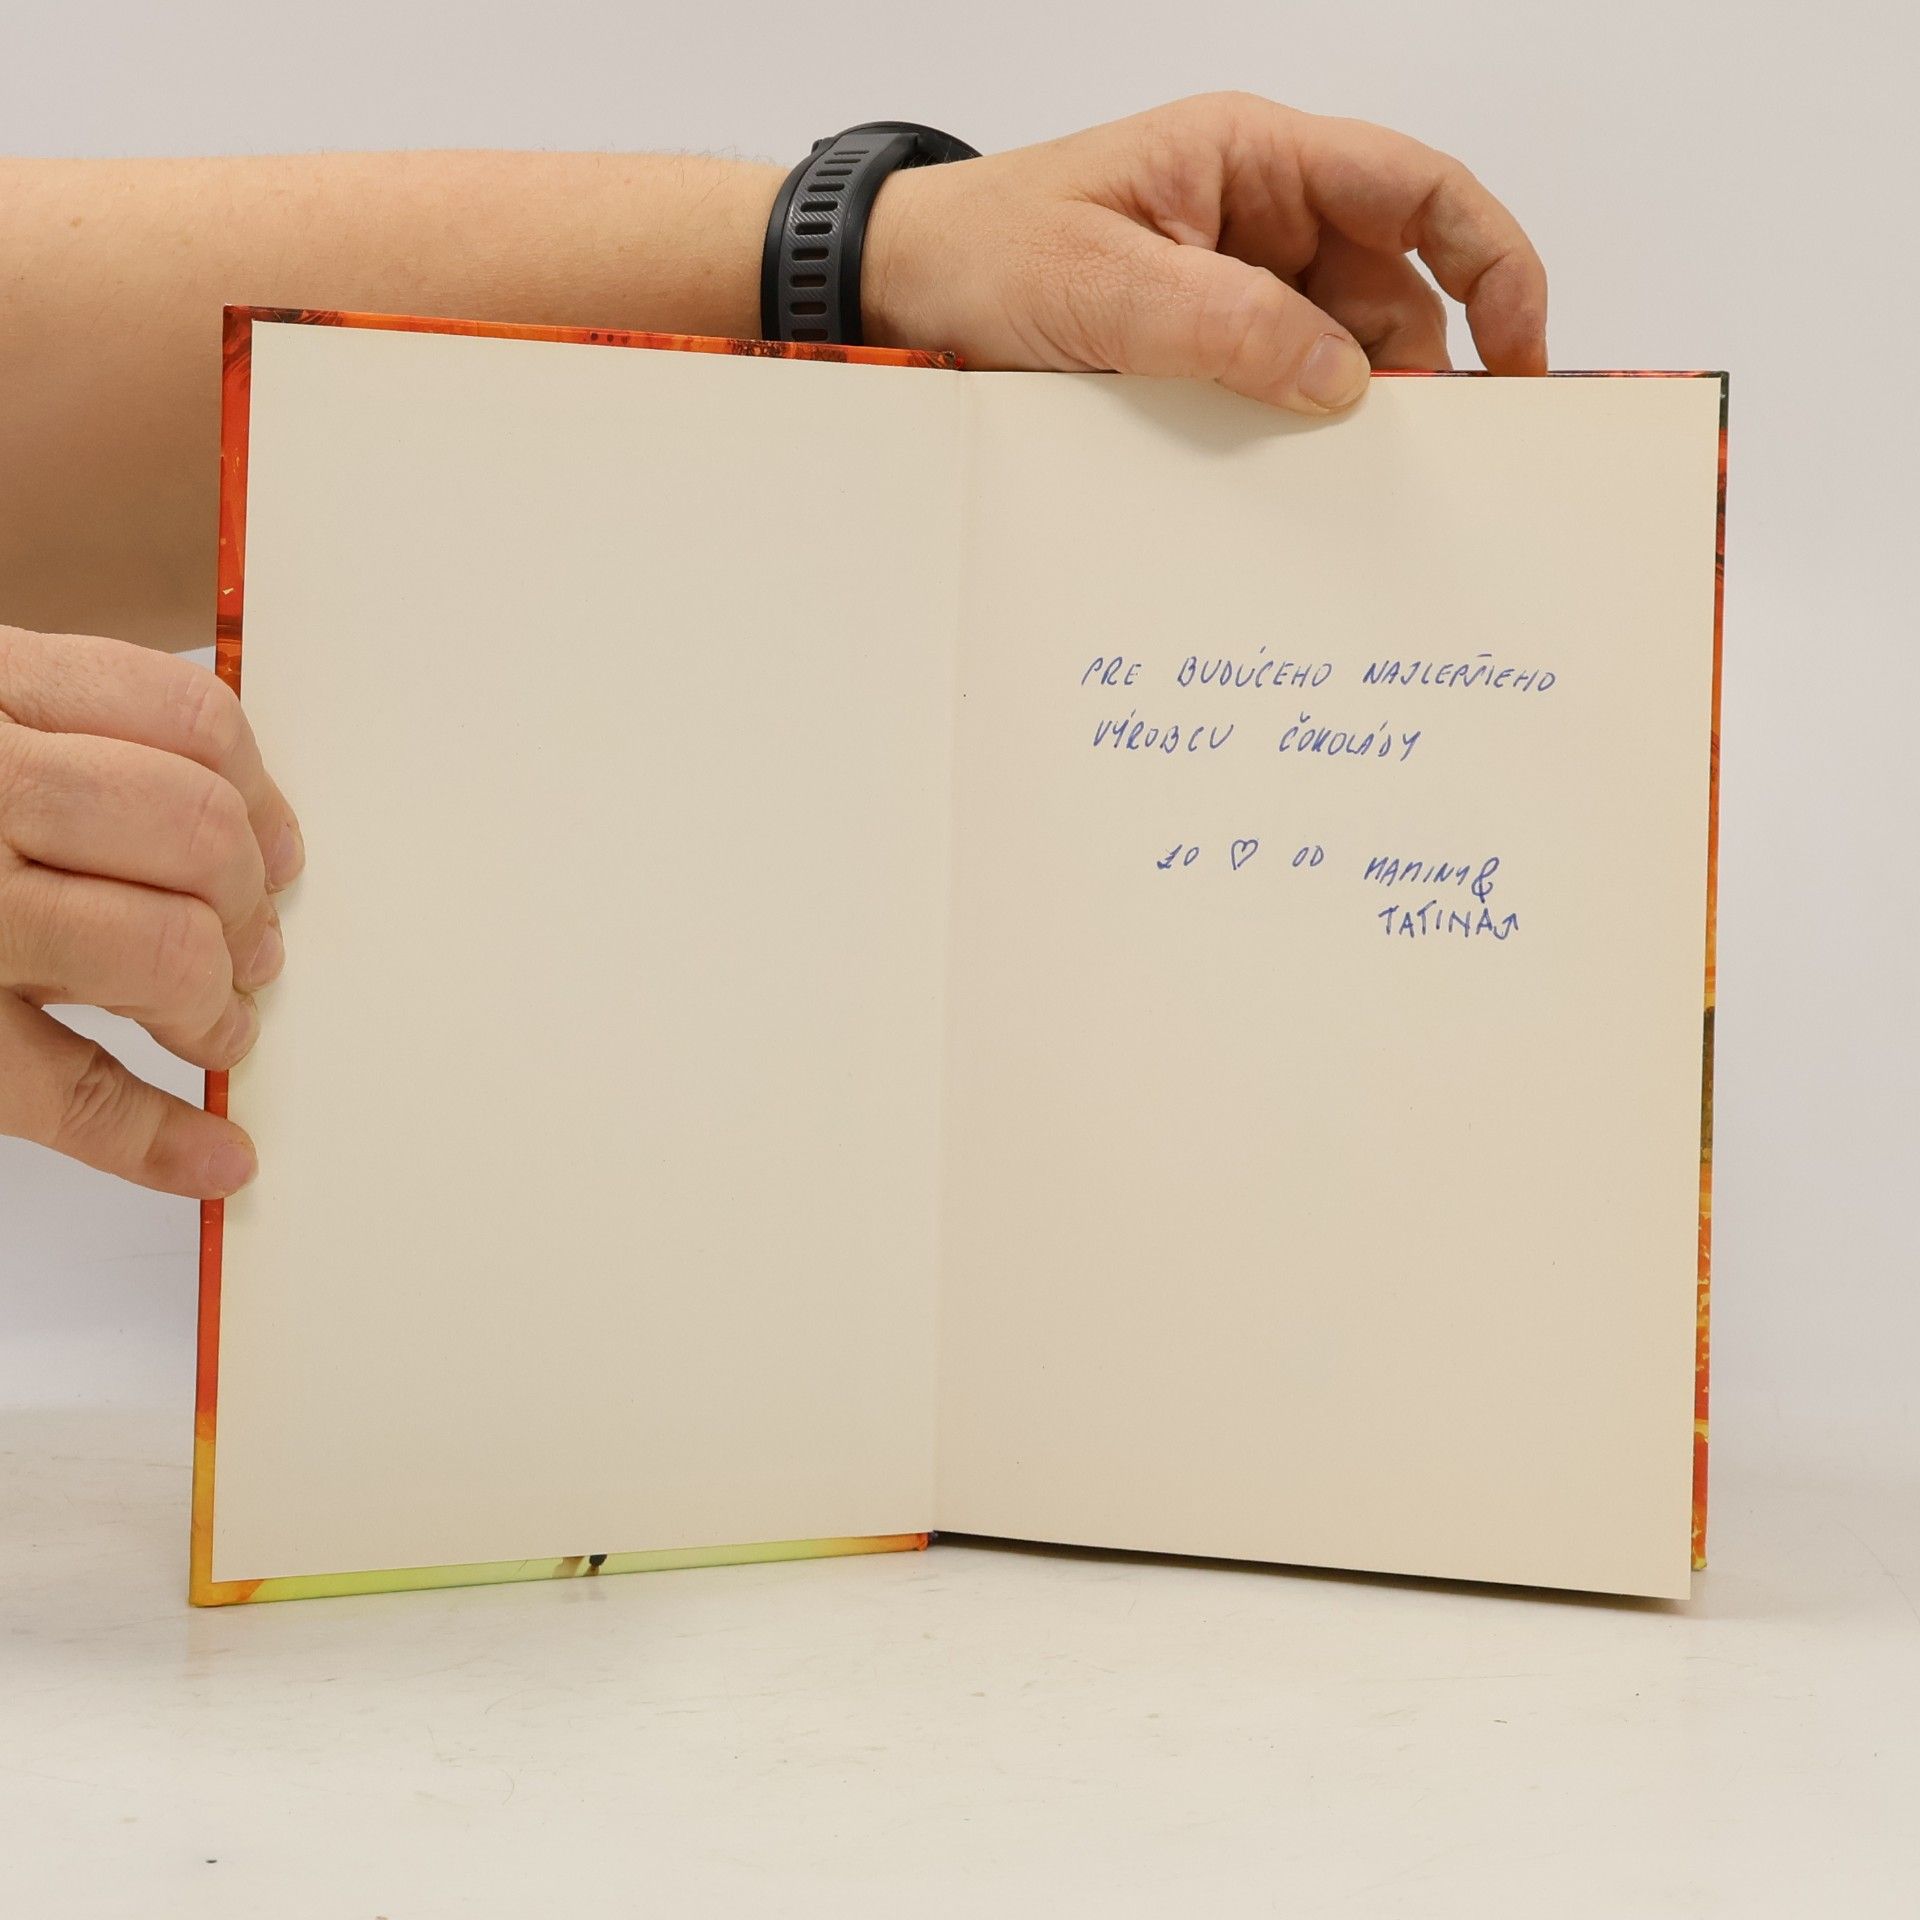 PRE BUDÚCEHO NAJLEPŠIEHO
VÝROBCU ČOKOLÁDY
ZO ♡ OD MAMINY &
TATINA